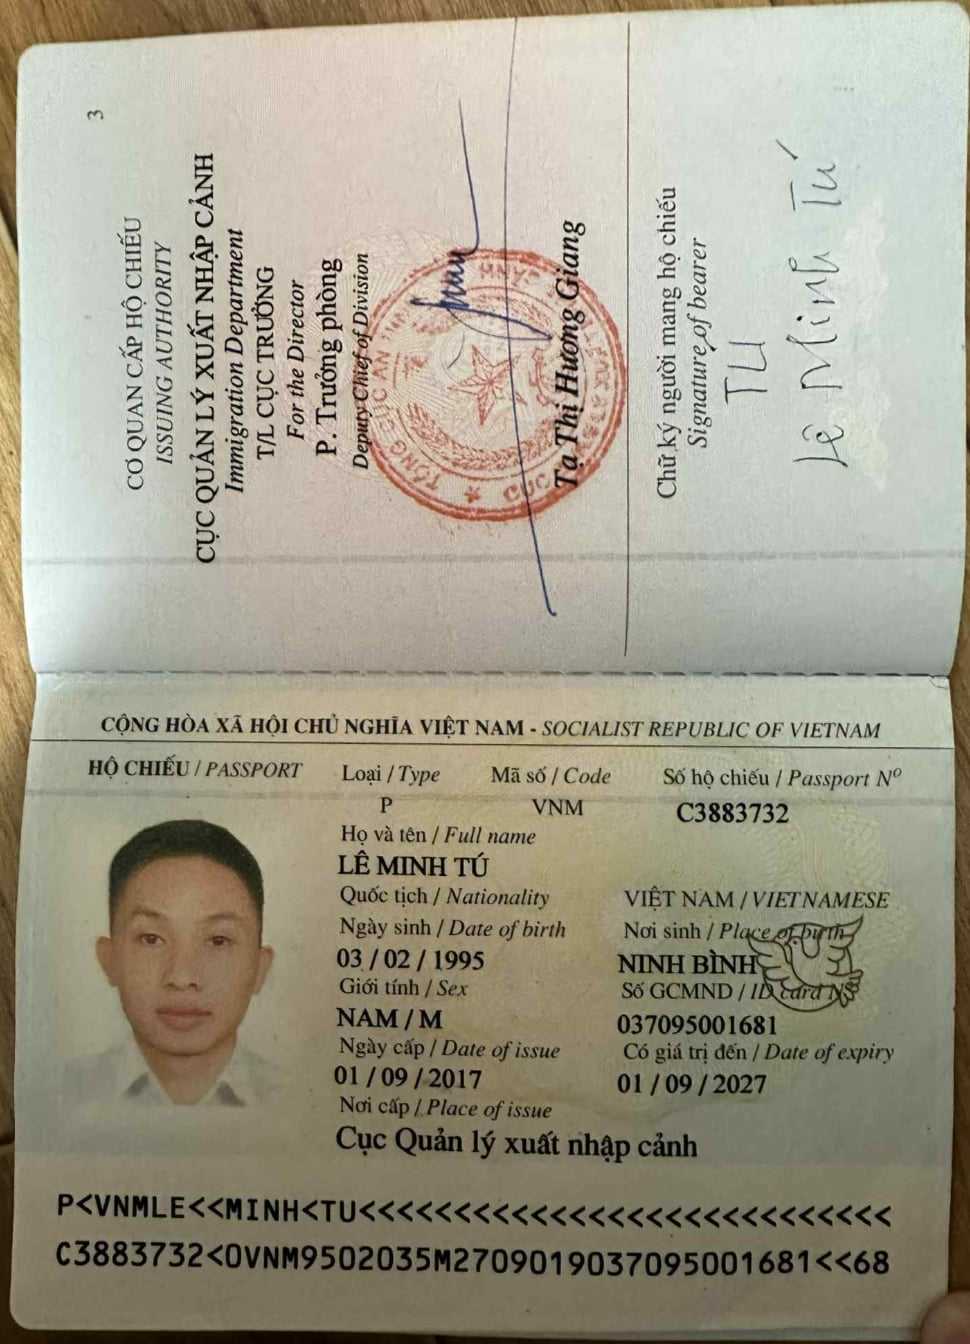 3
CƠ QUAN CẤP HỘ CHIẾU
ISSUING AUTHORITY
CỤC QUẢN LÝ XUẤT NHẬP CẢNH
Immigration Department
T/L CỤC TRƯỞNG
For the Director
P. Trưởng phòng
Deputy Chief of Division
Tạ Thị Hương Giang
Chữ ký người mang hộ chiếu
Signature of bearer
TU
Lê Minh Tú
CỘNG HÒA XÃ HỘI CHỦ NGHĨA VIỆT NAM - SOCIALIST REPUBLIC OF VIETNAM
HỘ CHIẾU / PASSPORT
Loại / Type Mã số / Code Số hộ chiếu / Passport Nº
P VNM C3883732
Họ và tên / Full name
LÊ MINH TÚ
Quốc tịch / Nationality VIỆT NAM / VIETNAMESE
Ngày sinh / Date of birth Nơi sinh / Place of birth
03 / 02 / 1995 NINH BÌNH
Giới tính / Sex Số GCMND / ID card Nº
NAM / M 037095001681
Ngày cấp / Date of issue Có giá trị đến / Date of expiry
01 / 09 / 2017 01 / 09 / 2027
Nơi cấp / Place of issue
Cục Quản lý xuất nhập cảnh
P<VNMLE<<MINH<TU<<<<<<<<<<<<<<<<<<<<<<<<<<<<
C3883732<0VNM9502035M2709019037095001681<<68